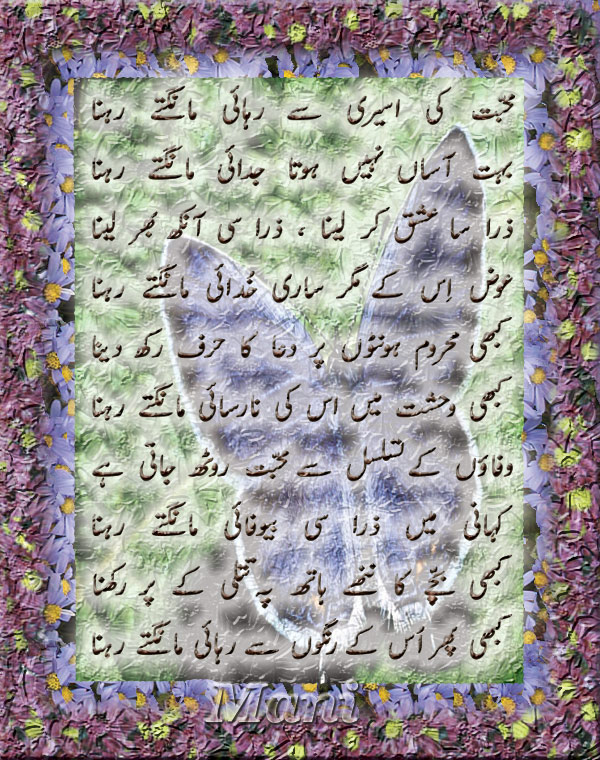 محبّت کی اسیری سے رہائی مانگتے رہنا
بہت آساں نہیں ہوتا جدائی مانگتے رہنا
ذرا سا عشق کر لینا ، ذرا سی آنکھ بھر لینا
عوض اِس کے مگر ساری خُدائی مانگتے رہنا
کبھی محروم ہونٹوں پر دعا کا حرف رکھ دینا
کبھی وحشت میں اس کی نارسائی مانگتے رہنا
وفاؤں کے تسلسل سے محبّت روٹھ جاتی ہے
کہانی میں ذرا سی بیوفائی مانگتے رہنا
کبھی بچّے کا ننھے ہاتھ پہ تتلی کے پر رکھنا
کبھی پھر اُس کے رنگوں سے رہائی مانگتے رہنا
Mani